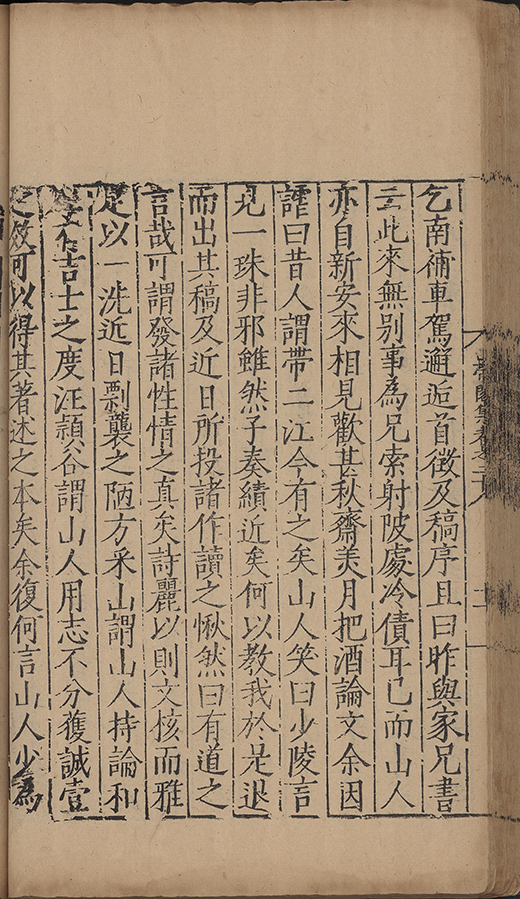 乞南禰車駕邂逅首徵及稿序且曰昨與家兄書
云此來無別事為兄索射陂處冷債耳已而山人
亦自新安來相見歡甚秋齋美月把酒論文余因
謔曰昔人謂帶二江今有之矣山人笑曰少陵言
見一珠非邪雖然子奏績近矣何以教我於是退
而出其稿及近日所投諸作讀之愀然曰有道之
言哉可謂發諸性情之真矣詩麗以則文核而雅
足以一洗近日剽襲之陋方采山謂山人持論和
吉士之度汪頴谷謂山人用志不分獲誠壹
之效可以得其著述之本矣余復何言山人少為
集卷之二
二